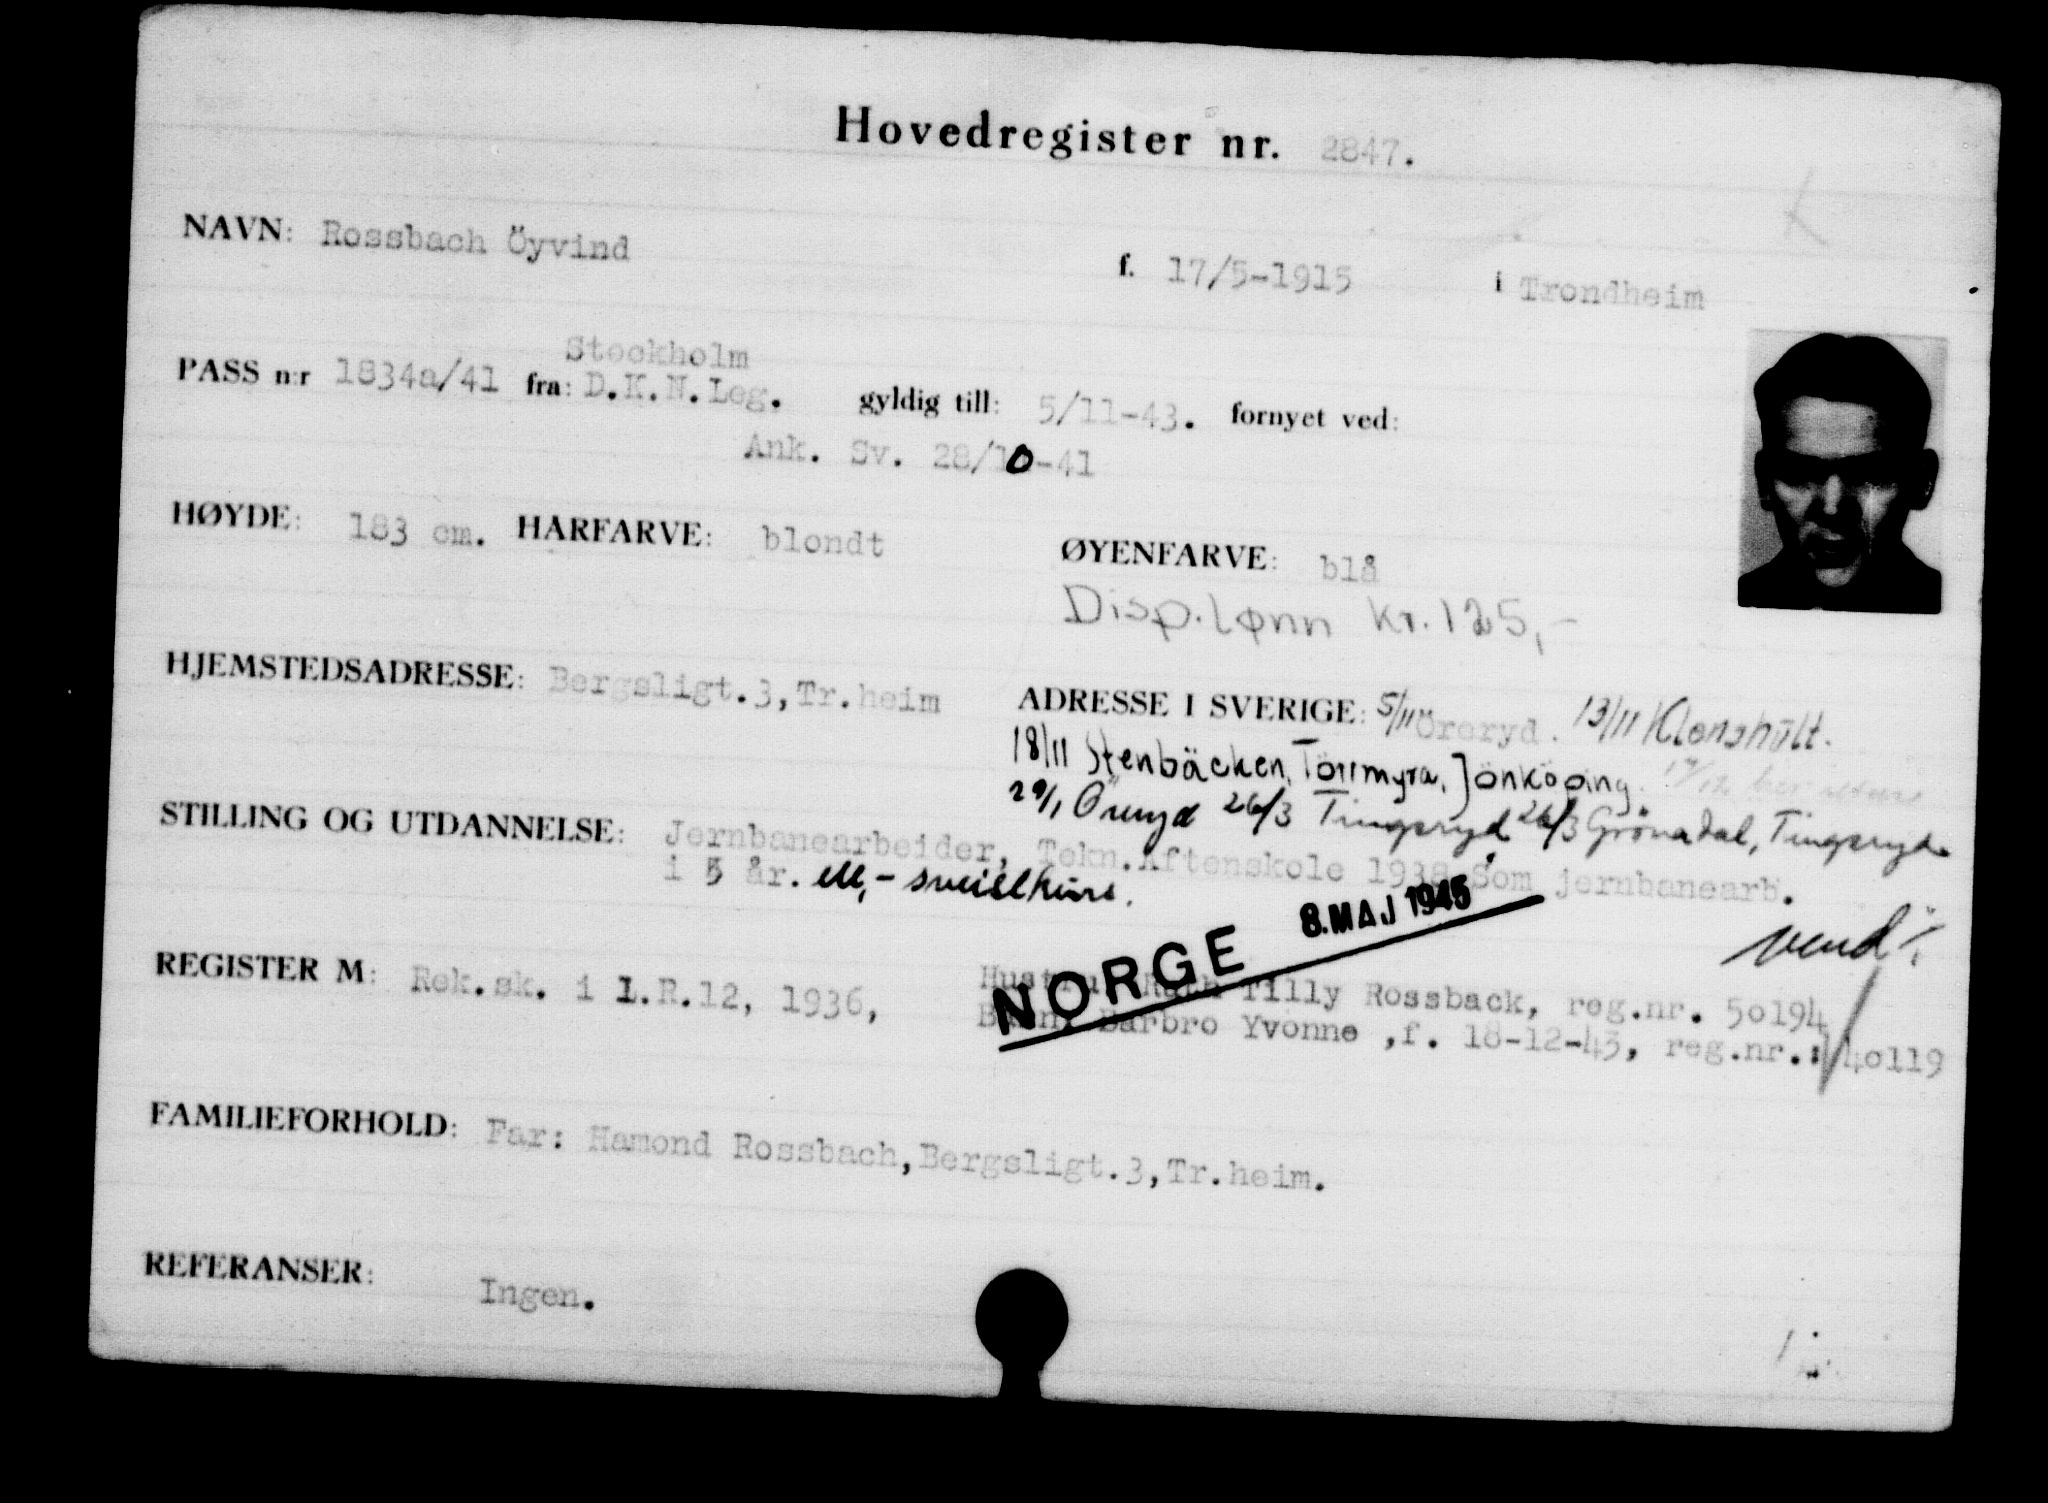 Hovedregister nr. 2847.
NAVN: Rossbach Öyvind f. 17/5-1915 i Trondheim
Stockholm
PASS n:r 1834a/41 fra: D.K.N.Leg. gyldig till: 5/11-43. fornyet ved:
Ank. Sv. 28/10-41
HØYDE: 183 cm. HÅRFARVE: blondt ØYENFARVE: blå
Disp.lønn kr.125,-
HJEMSTEDSADRESSE: Bergsligt.3,Tr.heim ADRESSE I SVERIGE: 5/11 Öreryd. 13/11 Klenshult.
18/11 Stenbäcken, Törrmyra, Jönköping. 17/12
29/1 Öreryd 26/3 Tingsryd 26/3 Grönadal, Tingsryd.
STILLING OG UTDANNELSE: Jernbanearbeider, Tekn.Aftenskole 1938. Som jernbanearb.
i 5 år. ell,- sveisekurs.
vend ./.
NORGE 8.MAJ 1945
REGISTER M: Rek.sk. i I.R.12, 1936, Hustru: Ruth Tilly Rossback, reg.nr. 50194
Barn: Barbro Yvonne ,f. 18-12-43, reg.nr.: 40119
FAMILIEFORHOLD: Far: Hamond Rossbach,Bergsligt.3,Tr.heim.
REFERANSER: Ingen.